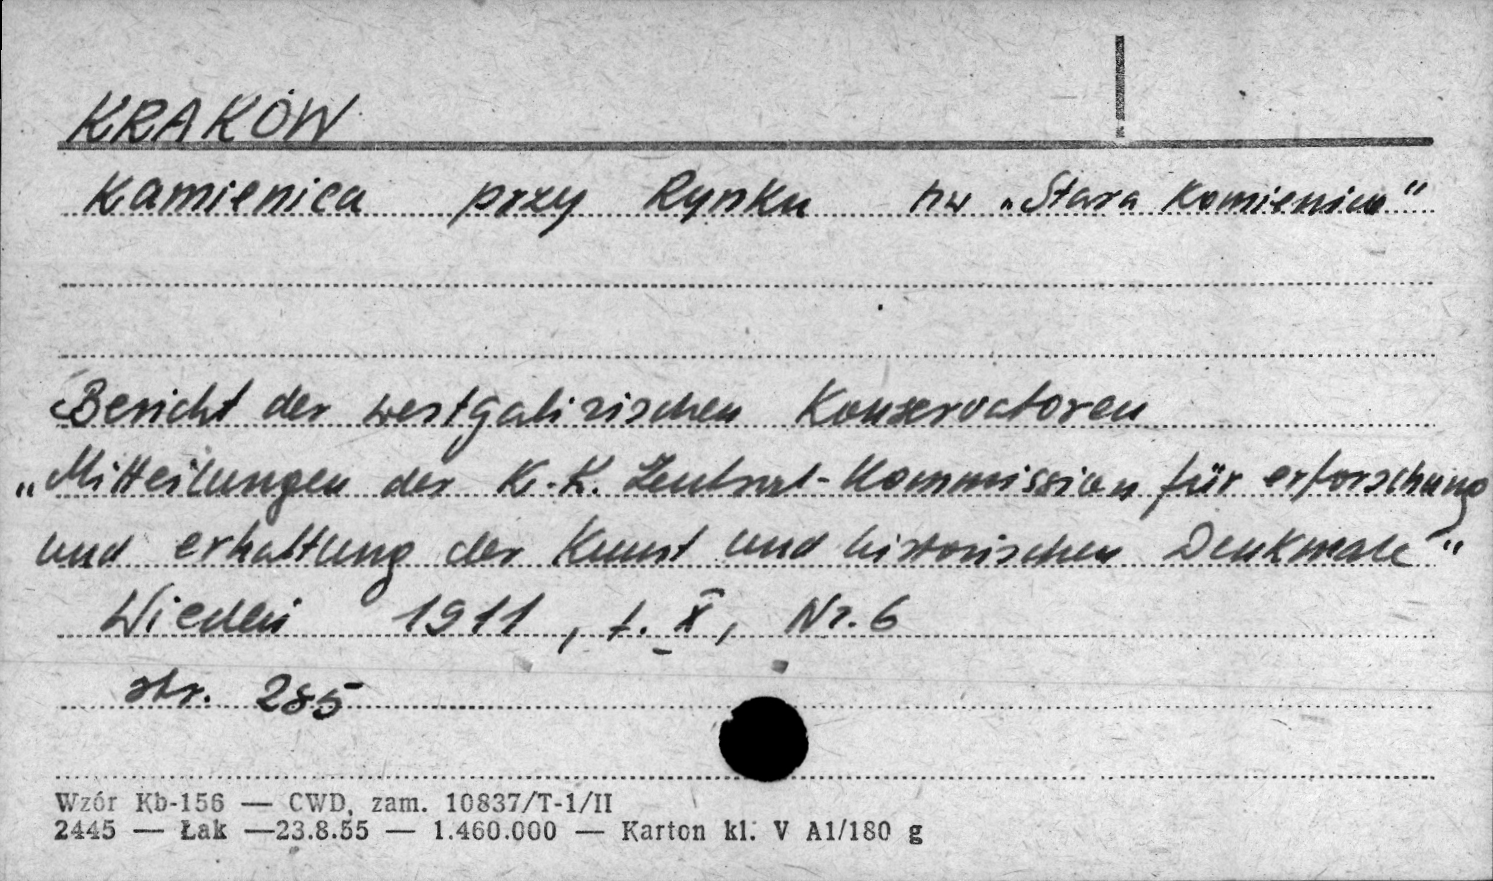 KRAKÓW
Kamienica przy Rynku nw „Stara Kamienica”
Bericht der westgalizischen Konservatoren
„Mitteilungen der K.K. Zentral-Kommission für erforschung
und erhaltung der Kunst und historischen Denkmale”
Wiedeń 1911, t. X, Nr. 6
str. 285
Wzór Kb-156 — CWD, zam. 10837/T-1/II
2445 — Łak —23.8.55 — 1.460.000 — Karton kl. V A1/180 g